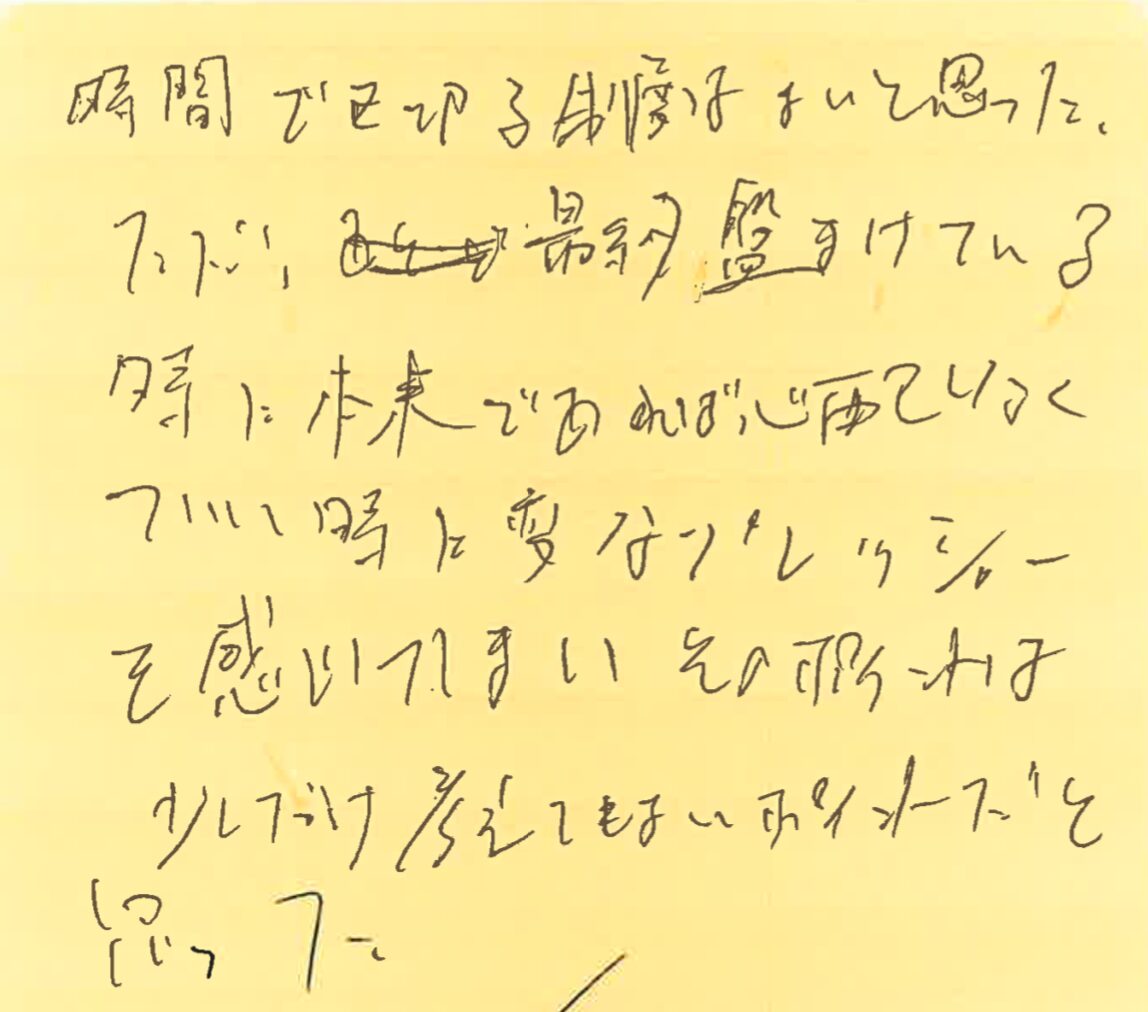 時間で区切る制度はよいと思った。
ただ、最終盤まけている
時に本来であれば、心配しなく
ていい時に変なプレッシャー
を感じてしまい その
少しだけ考えてもよいポイントだと
思った